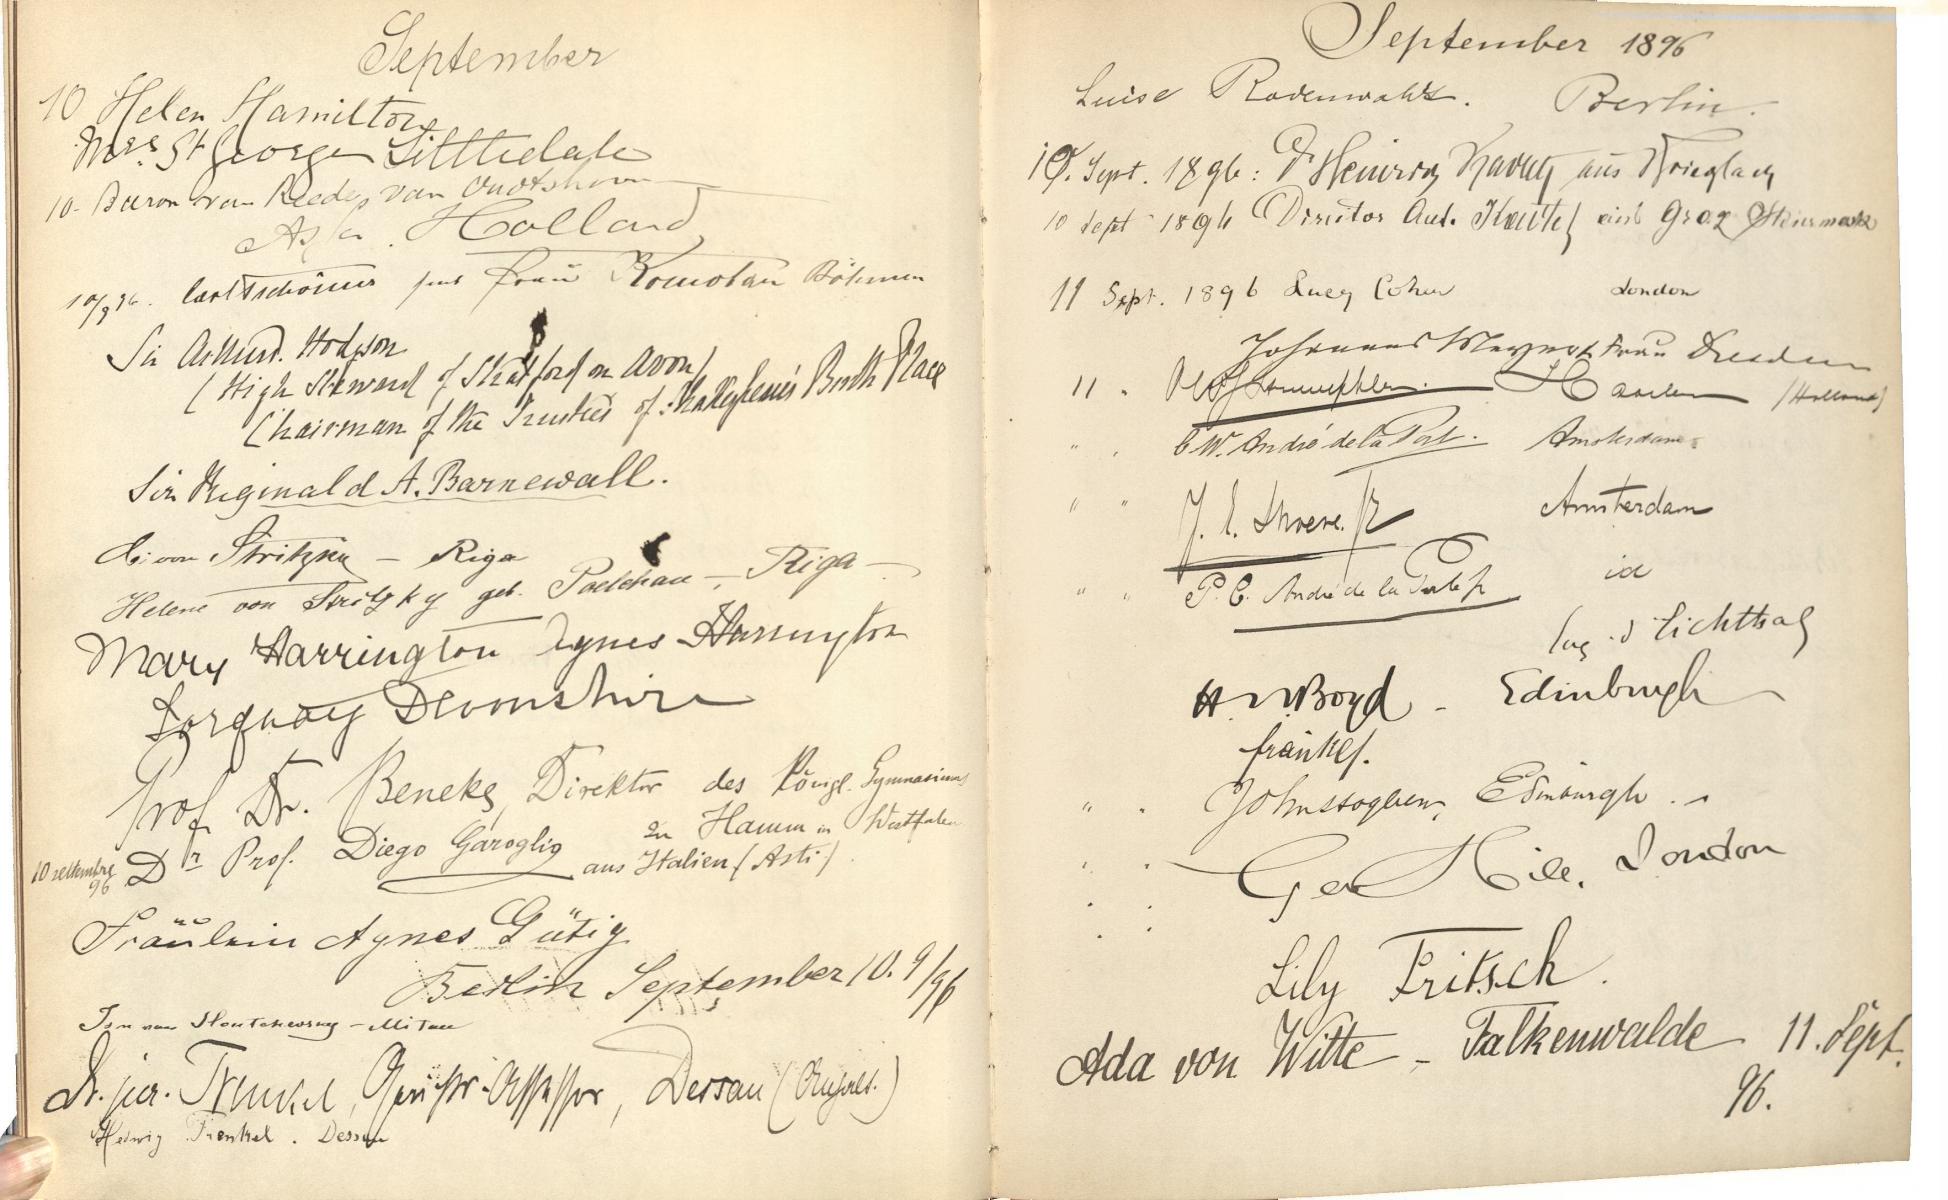 September
10 Helen Hamilton
Mrs. St George Littledale
10. Baron van Reede van Oudtshoorn
Holland
10/9 96. Carl Tschörner Frau Komotau Böhmen
Sir Arthur Hodgson
(High Steward of Stratford on Avon)
Chairman of the Trustees of Shakespeare's Birth Place
Sir Reginald A. Barnewall.
von Stritzky – Riga
Helene von Stritzky geb. – Riga –
Mary Harrington Agnes Harrington
Torquay Devonshire
Prof. Dr. Beneke, Direktor des Königl. Gymnasiums
zu Hamm in Westfalen
10 settembre 96 Dr Prof. Diego Garoglio aus Italien (Asti)
Fräulein Agnes Gütig
Berlin September 10. 9/96
von – Mitau
Dr. jur. Frenkel, Gerichts-Assessor, Dessau (Anhalt.)
Hedwig Frenkel. Dessau
September 1896
Luise Rodenwaldt. Berlin.
10. Sept. 1896: Dr Heinrich aus Krieglach
10 Sept 1896 Director Aut. aus Graz Steiermark
11 Sept. 1896 Lucy Cohen London
Johannes Meyner & Frau Dresden
11 " Haarlem (Holland)
" " C. W. André de la Porte. Amsterdam
" " J. E. Amsterdam
" " P. C. André de la Porte jr id
Lichthal
H. Boyd – Edinburgh
" " Edinburgh. –
" " Geo Hill. London
Lily Fritsch.
Ada von Witte – Falkenwalde 11. Sept.
96.